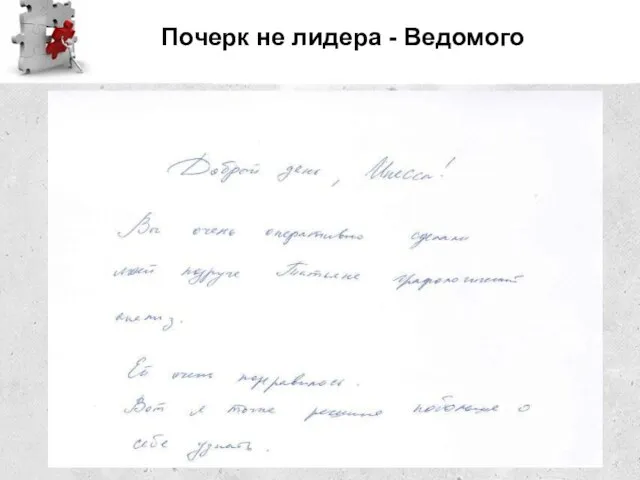 Почерк не лидера - Ведомого
Добрый день, Инесса!
Вы очень оперативно сделали
моей подруге Татьяне графологический
анализ.
Ей очень понравилось.
Вот я тоже решила побольше о
себе узнать.